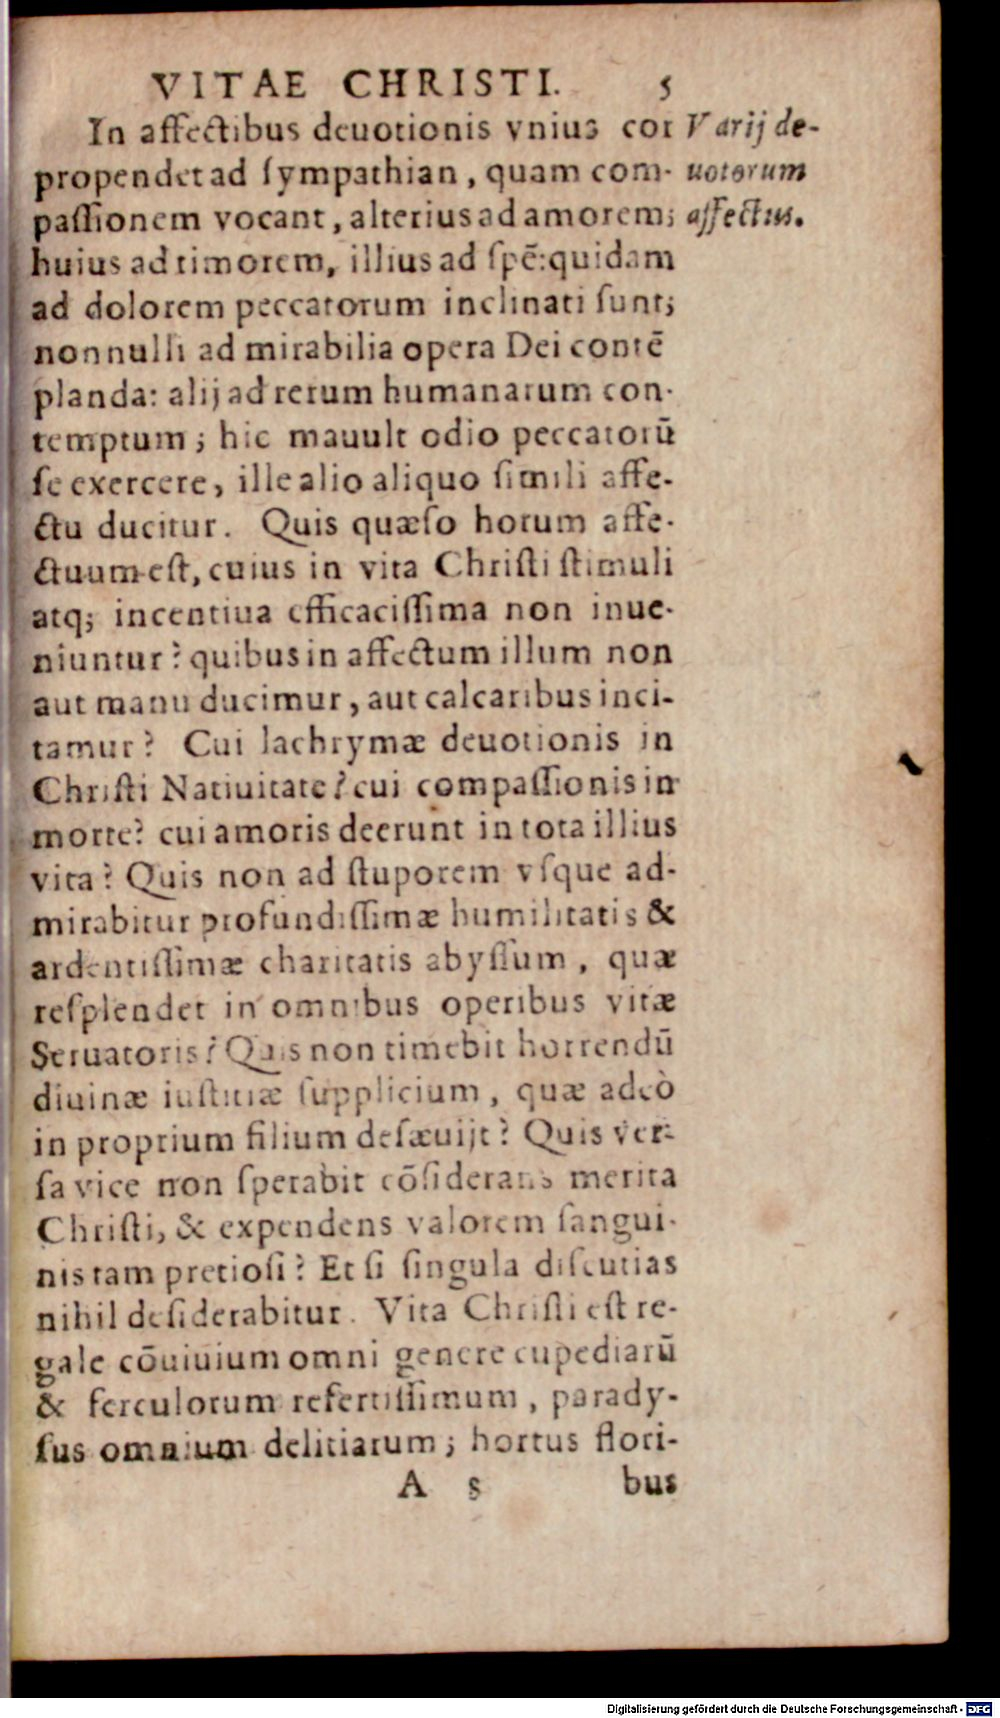 VITAE CHRISTI. 5
In affectibus deuotionis vnius cor
propendet ad ſympathian, quam com-
paſſionem vocant, alterius ad amorem;
huius ad timorem, illius ad ſpē: quidam
ad dolorem peccatorum inclinati ſunt;
nonnulli ad mirabilia opera Dei contē
planda: alij ad rerum humanarum con-
temptum; hic mauult odio peccatorū
ſe exercere, ille alio aliquo ſimili affe-
ctu ducitur. Quis quæſo horum affe-
ctuum eſt, cuius in vita Chriſti ſtimuli
atq; incentiua efficaciſſima non inue-
niuntur? quibus in affectum illum non
aut manu ducimur, aut calcaribus inci-
tamur? Cui lachrymæ deuotionis in
Chriſti Natiuitate? cui compaſſionis in
morte? cui amoris deerunt in tota illius
vita? Quis non ad ſtuporem vſque ad-
mirabitur profundiſſimæ humilitatis &
ardentiſſimæ charitatis abyſſum, quæ
reſplendet in omnibus operibus vitæ
Seruatoris? Quis non timebit horrendū
diuinæ iuſtitiæ ſupplicium, quæ adeò
in proprium filium deſæuijt? Quis ver-
ſa vice non ſperabit cōſiderans merita
Chriſti, & expendens valorem ſangui-
nis tam pretioſi? Et ſi ſingula diſcutias
nihil deſiderabitur. Vita Chriſti eſt re-
gale cōuiuium omni genere cupediarū
& ferculorum refertiſſimum, parady-
ſus omnium delitiarum; hortus flori-
A 5 bus
Varij de-
uotorum
affectus.
Digitalisierung gefördert durch die Deutsche Forschungsgemeinschaft - DFG